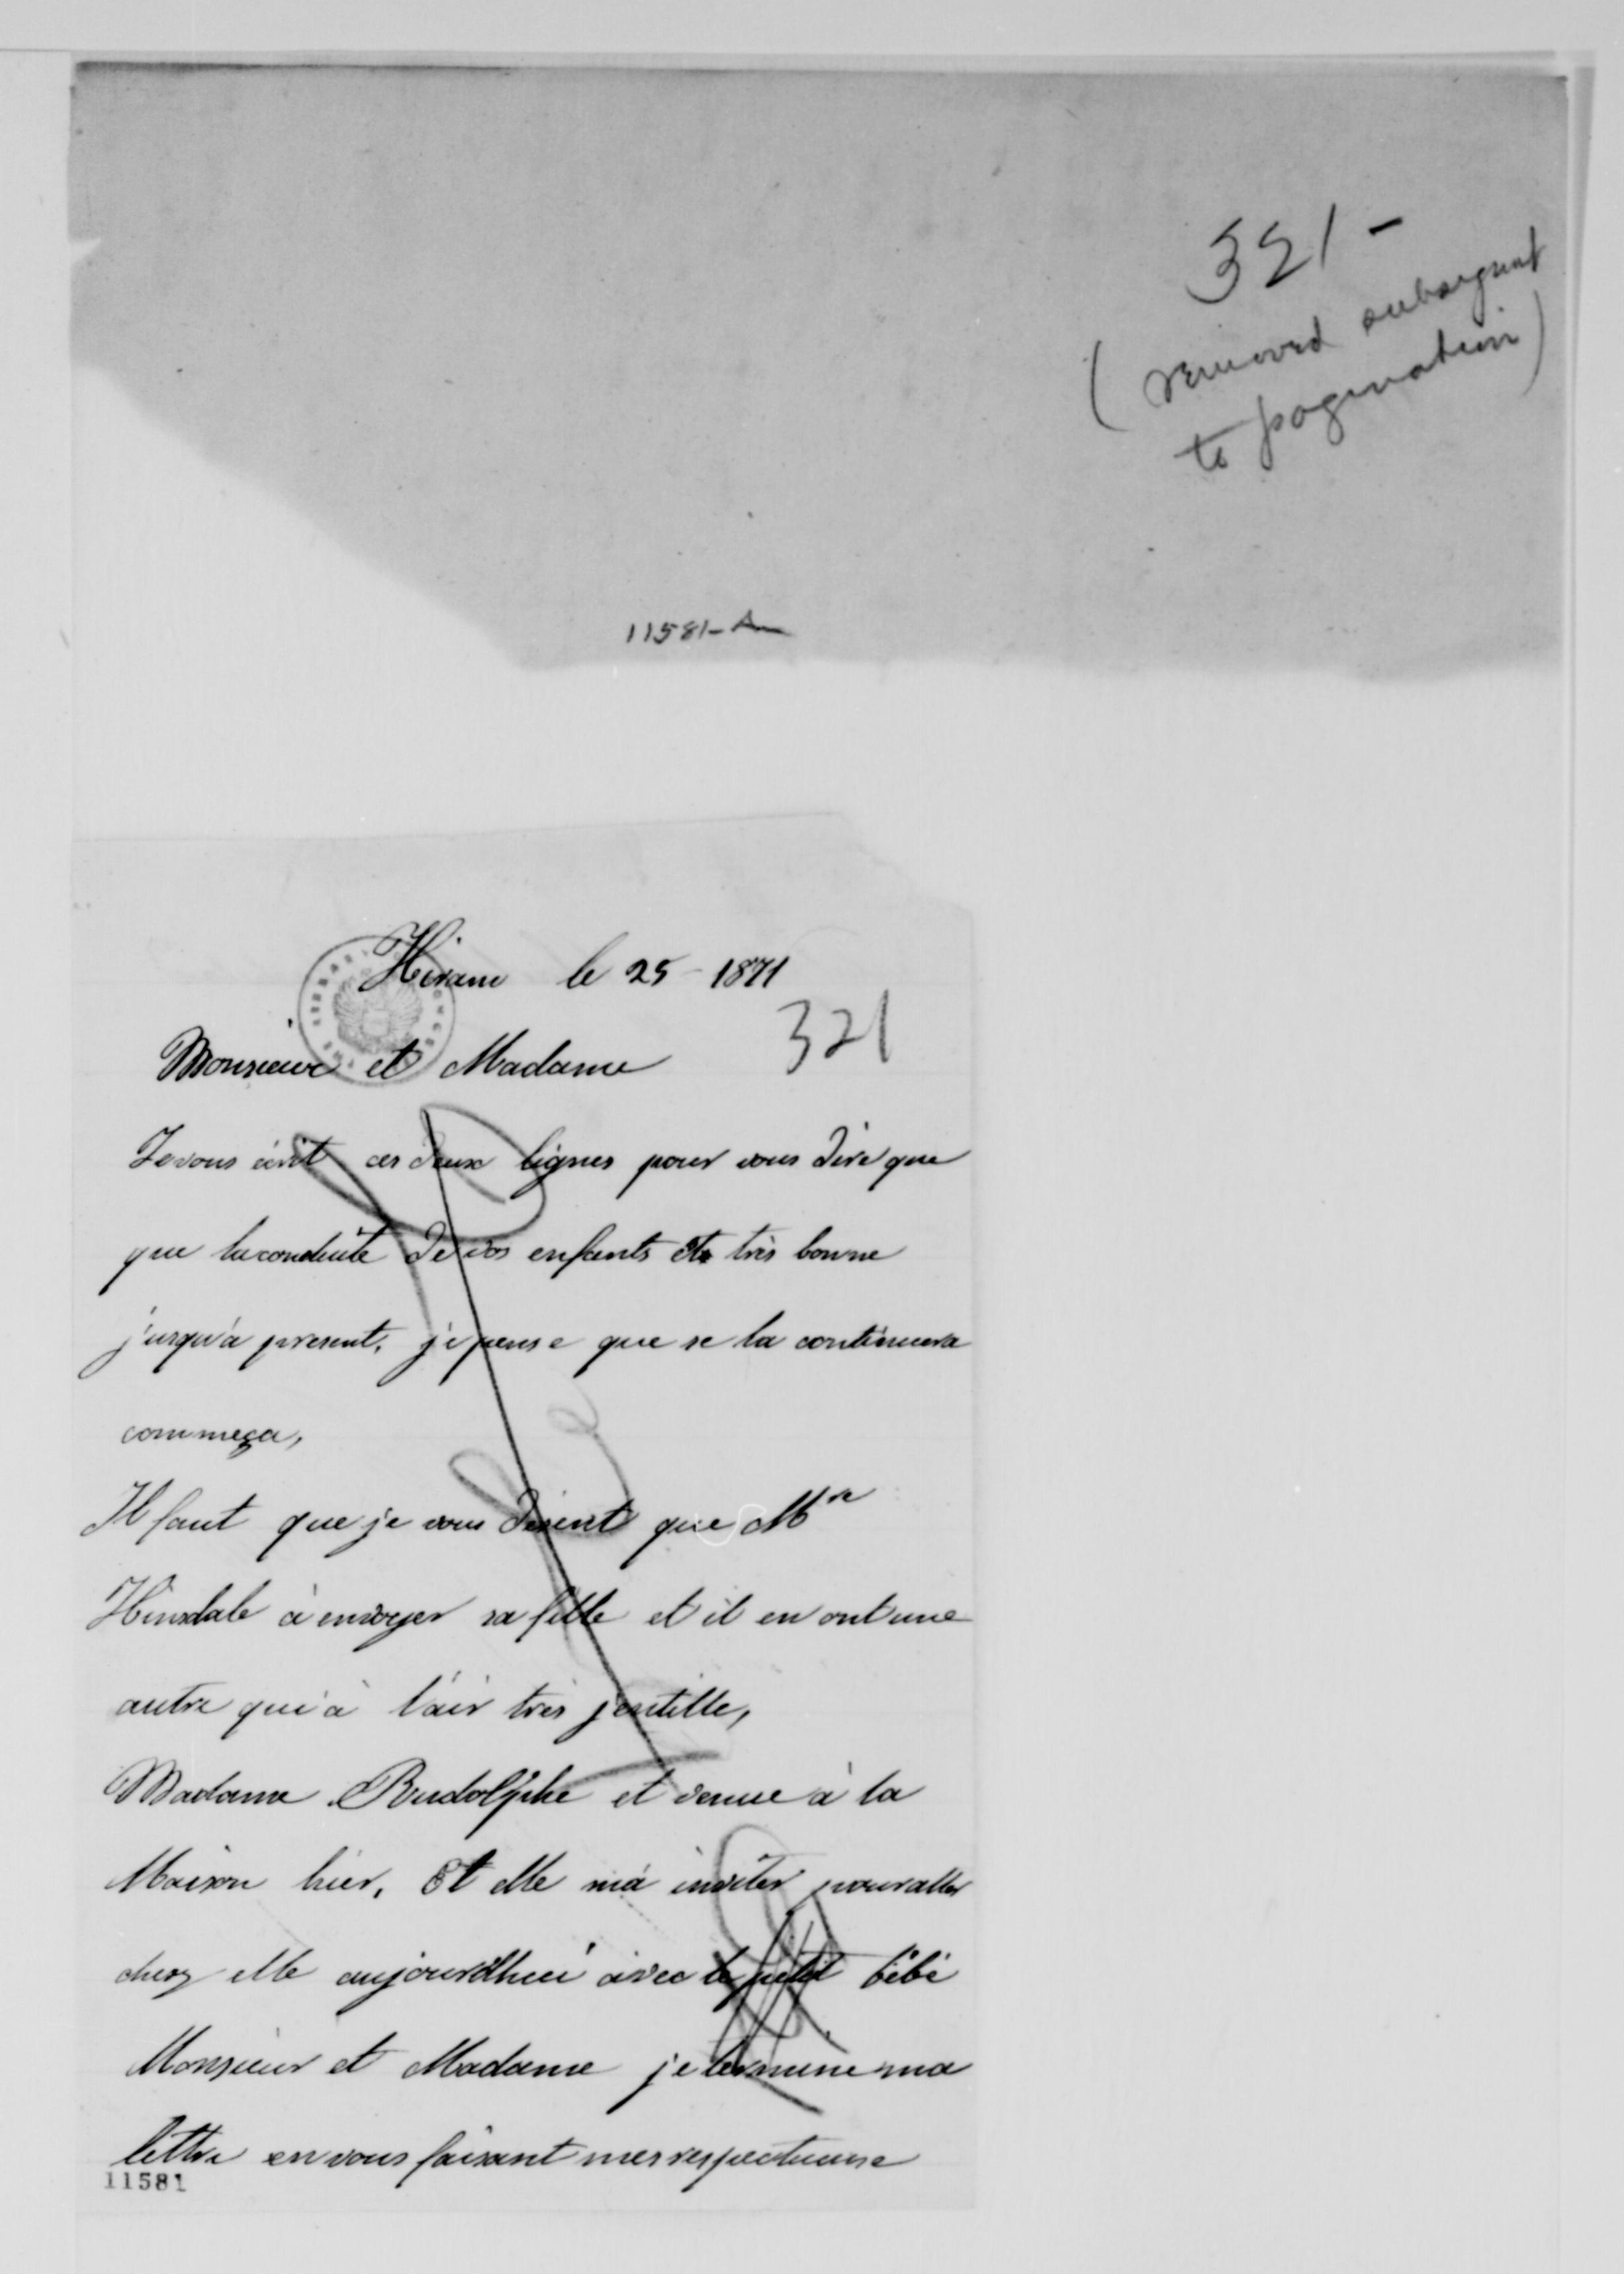 321-
(removed subsequent
to pagination)
11581-A
Hiram le 25 - 1871
321
Monsieur et Madame
Je vous écrit ces deux lignes pour vous dire que
que la conduite de vos enfants ète très bonne
jusqu'a present, je pense que se la continuera
commeça,
Il faut que je vous disent que Mre
Hinsdale à envoyer sa fille et il en ont une
autre qui à l'air très jentille,
Madame Rudolphe et venue à la
Maison hier, Et elle m'a inviter pour aller
chez elle aujourdhui avec le petit bébé
Monsieur et Madame je termine ma
lettre en vous faisant mes respectueuse
11581